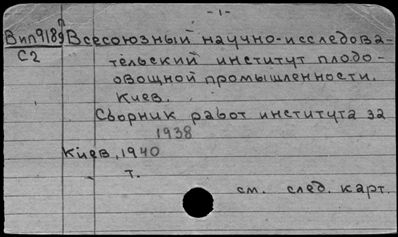 -1-
Вип9189 Всесоюзный научно-исследова-
С2 тельский институт плодо-
овощной промышленности.
Киев.
Сборник работ института за
1938
Киев, 1940
т.
см. след. карт.